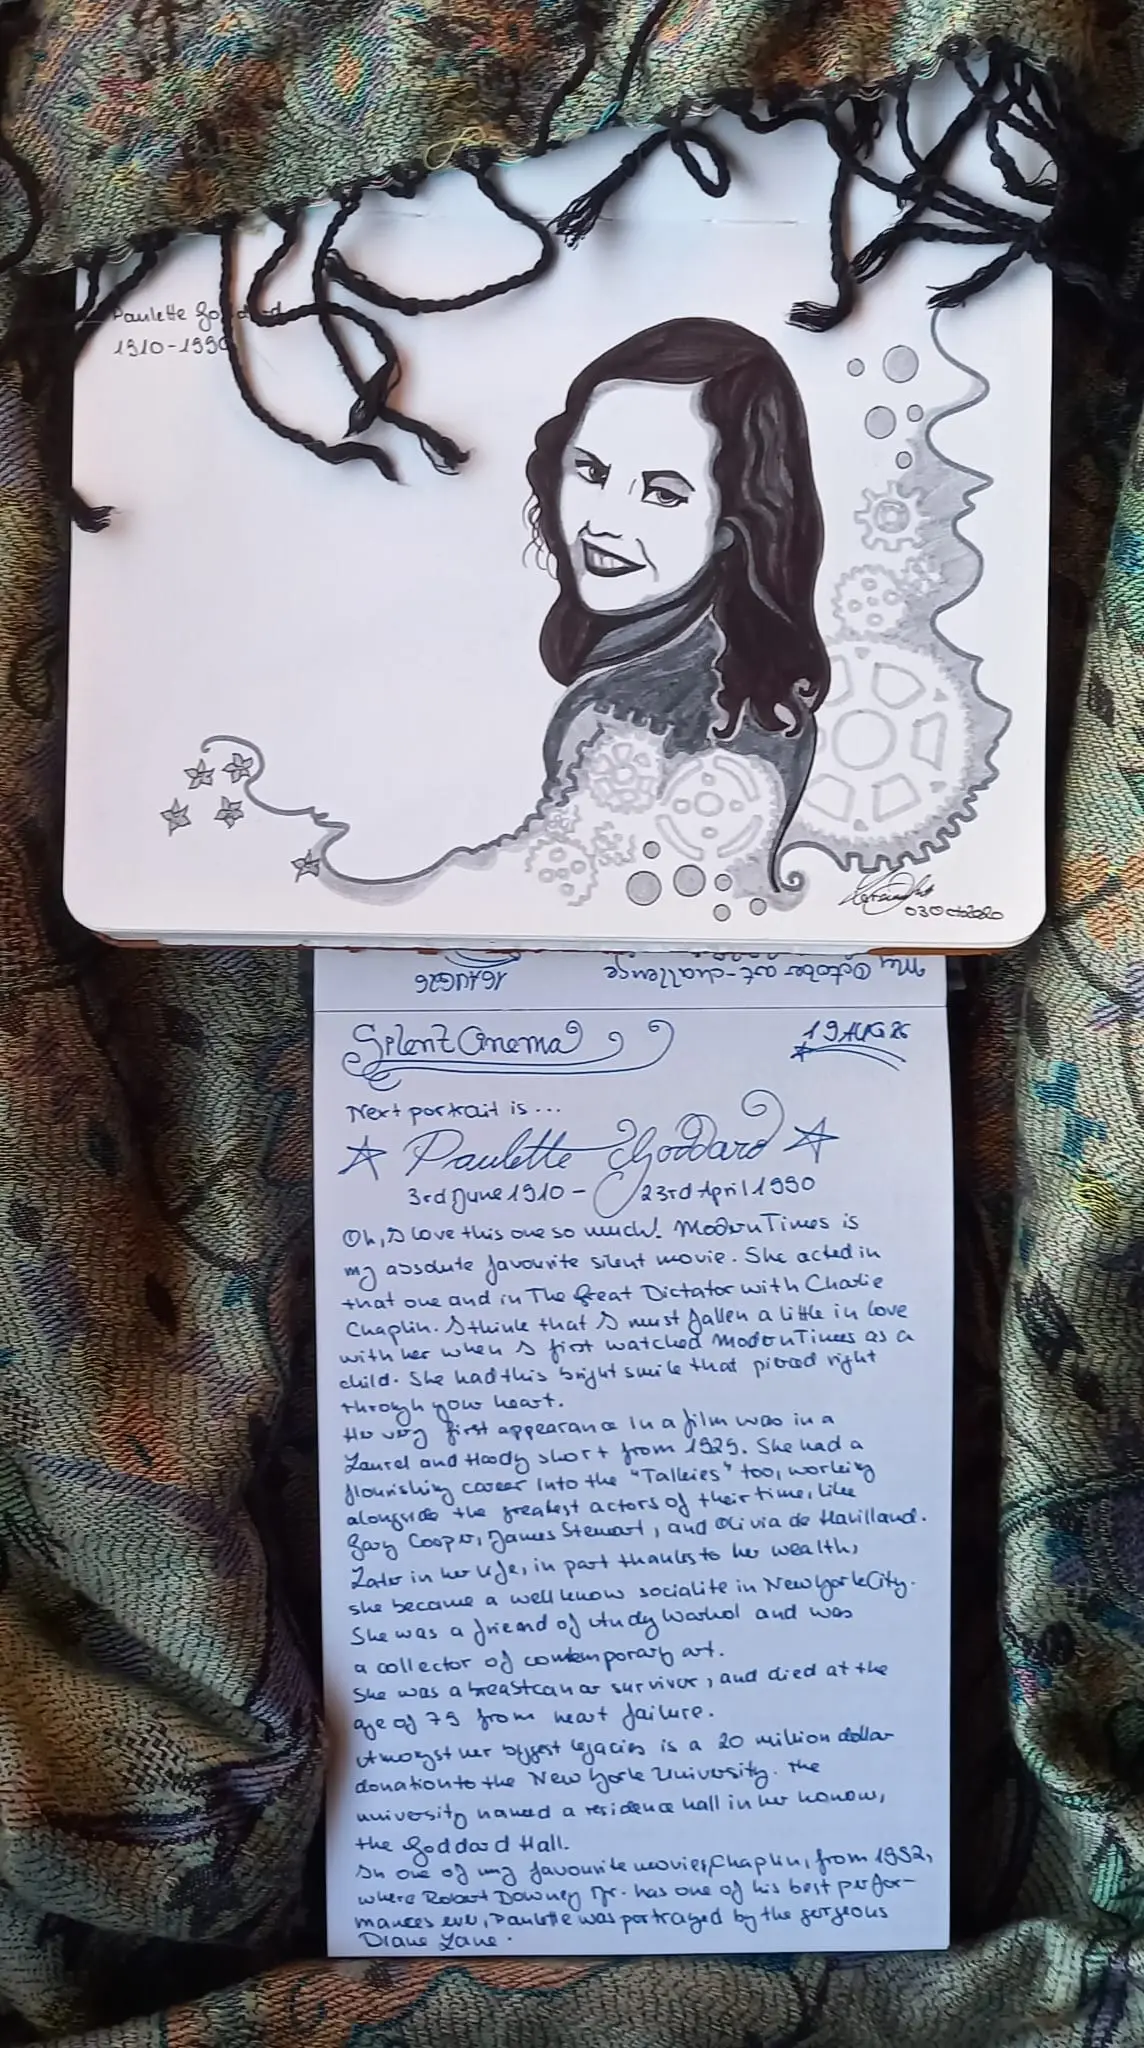 Paulette Goddard
1910-1990
03Oct2020
My October art-challenge
16AUG26
Silent Cinema
19AUG26
Next portrait is...
Paulette Goddard
3rd June 1910 - 23rd April 1990
Oh, I love this one so much! Modern Times is
my absolute favourite silent movie. She acted in
that one and in The Great Dictator with Charlie
Chaplin. I think that I must fallen a little in love
with her when I first watched Modern Times as a
child. She had this bright smile that pierced right
through your heart.
Her very first appearance in a film was in a
Laurel and Hardy short from 1929. She had a
flourishing career into the "Talkies" too, working
alongside the greatest actors of their time, like
Gary Cooper, James Stewart, and Olivia de Havilland.
Later in her life, in part thanks to her wealth,
she became a well know socialite in New York City.
She was a friend of Andy Warhol and was
a collector of contemporary art.
She was a breast cancer survivor, and died at the
age of 79 from heart failure.
Amongst her biggest legacies is a 20 million dollar
donation to the New York University. The
university named a residence hall in her honour,
the Goddard Hall.
In one of my favourite movies, Chaplin, from 1992,
where Robert Downey Jr. has one of his best perfor-
mances ever, Paulette was portrayed by the gorgeous
Diane Lane.